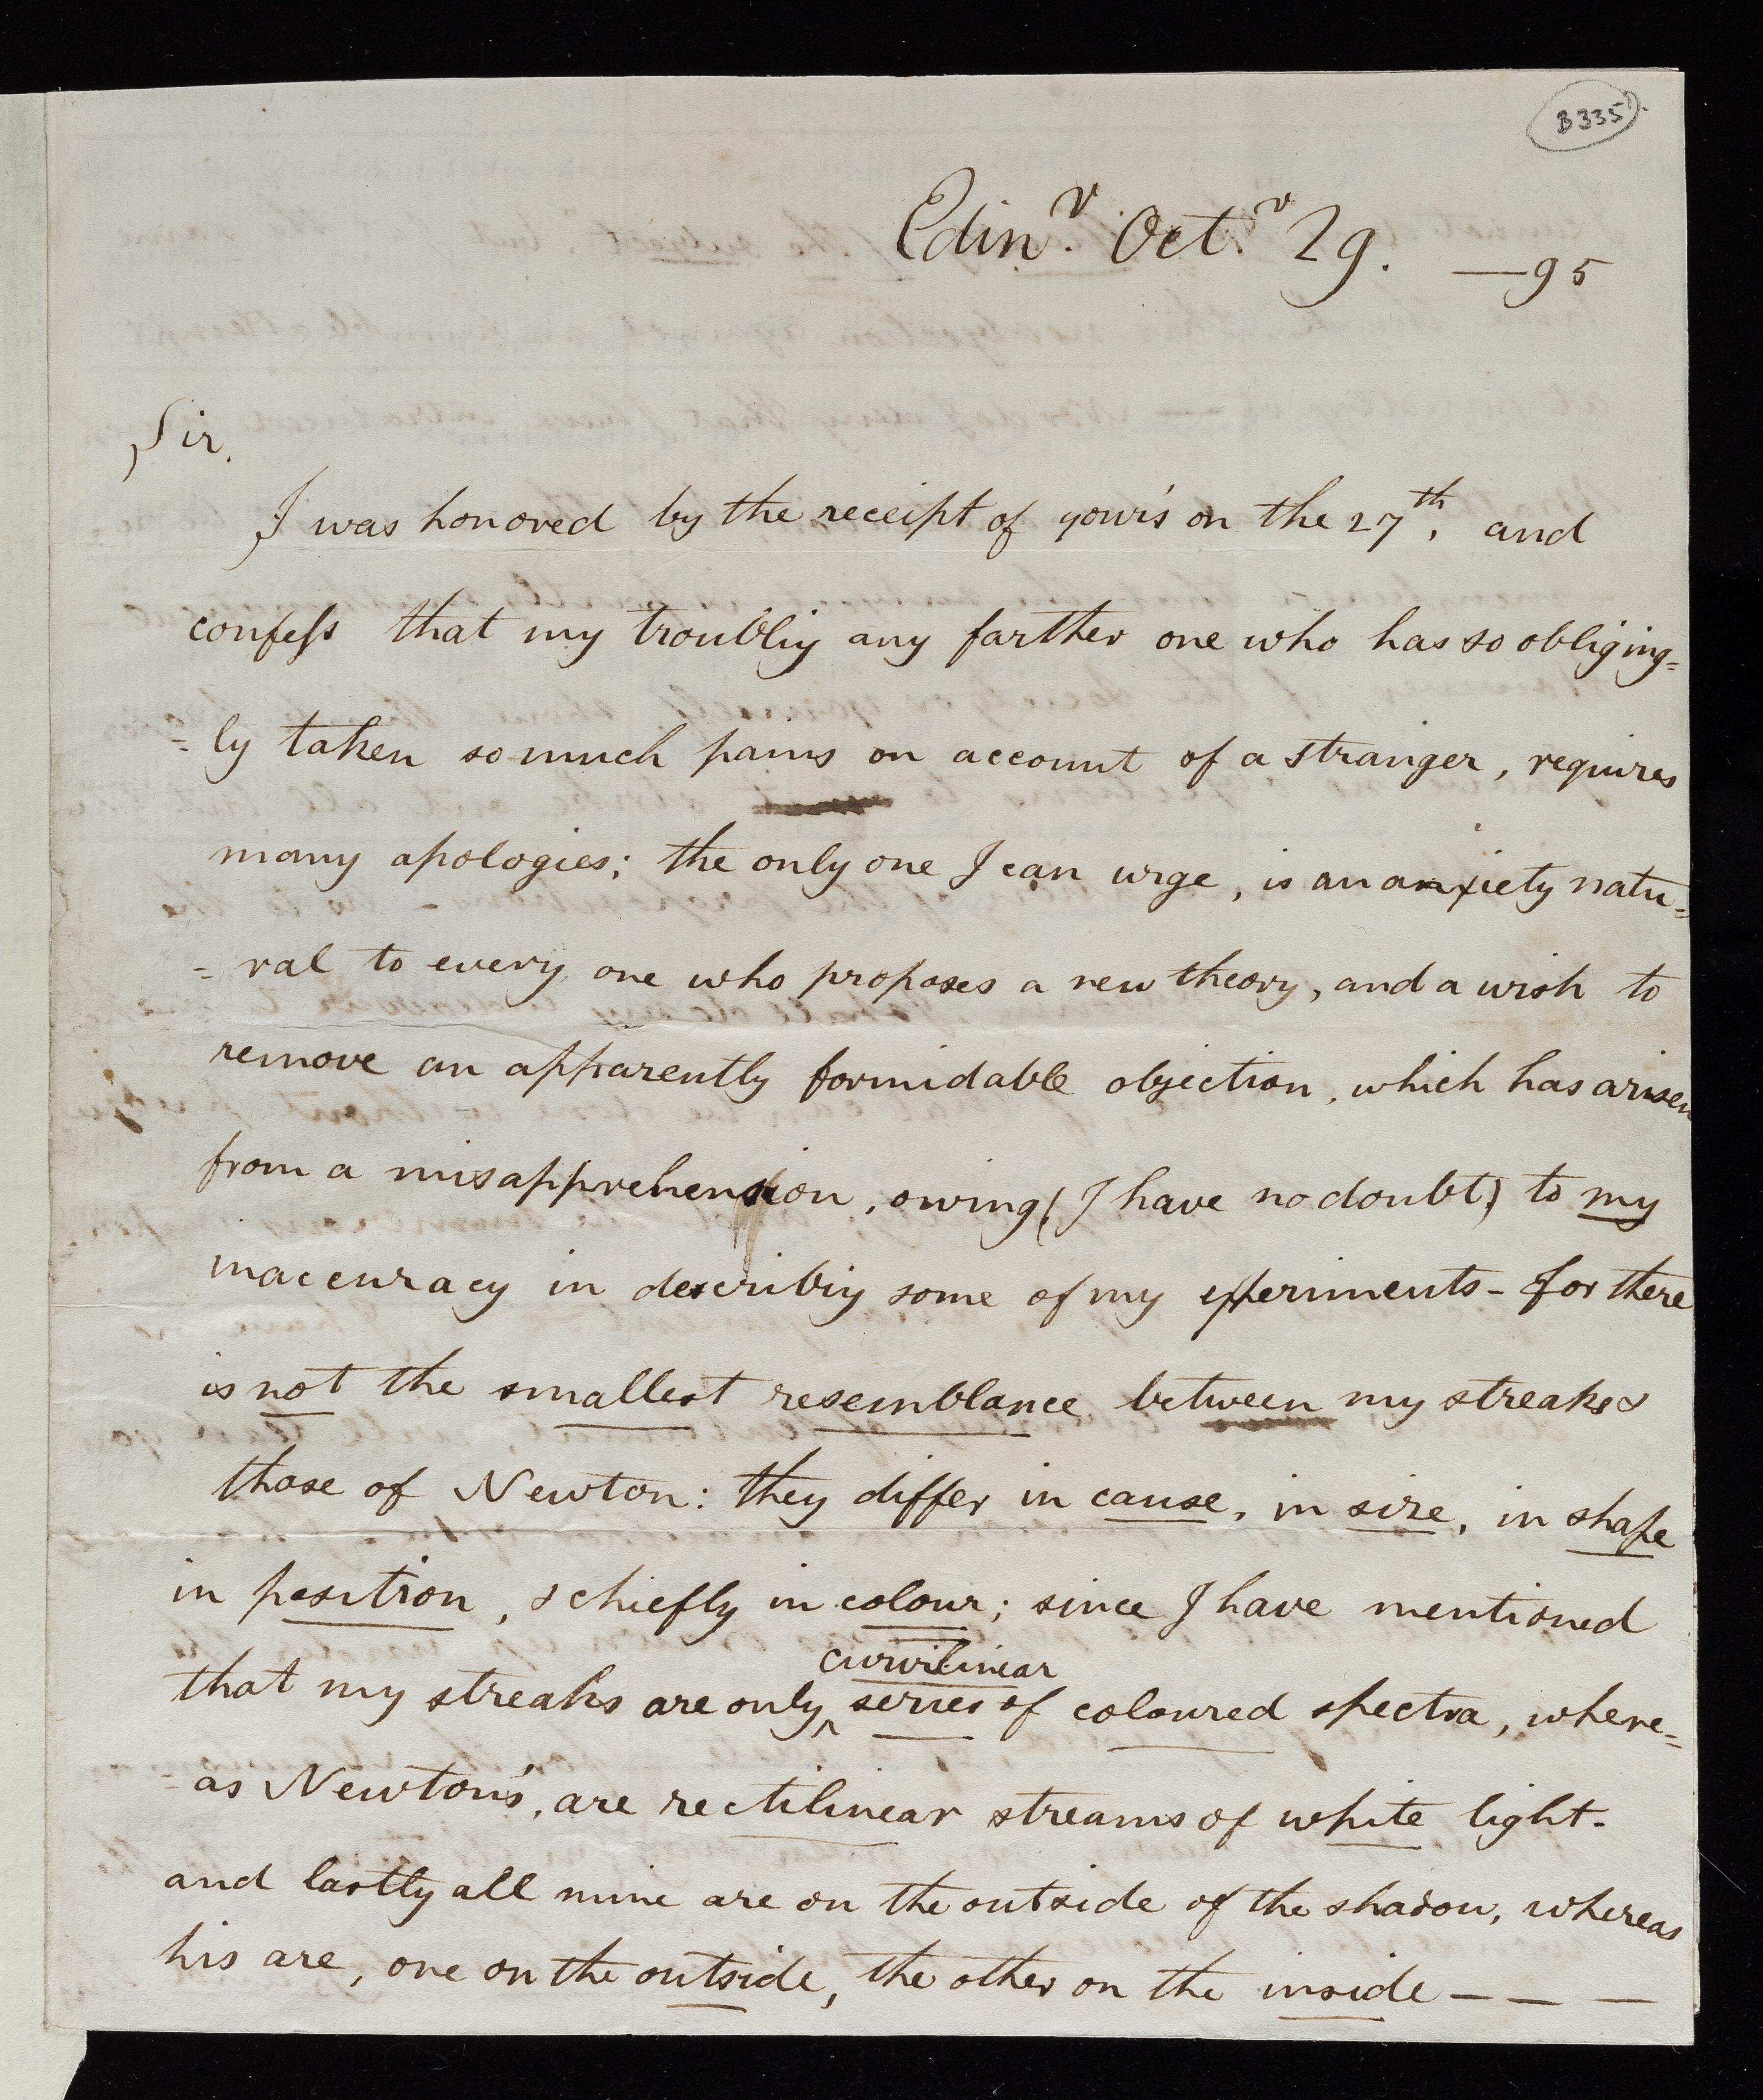 B335
Edinr. Octr. 29. —95
Sir.
I was honored by the receipt of your's on the 27th. and
confess that my troubling any farther one who has so obliging=
=ly taken so much pains on account of a stranger, requires
many apologies; the only one I can urge, is an anxiety natu=
=ral to every one who proposes a new theory, and a wish to
remove an apparently formidable objection, which has arisen
from a misapprehension, owing (I have no doubt) to my
inaccuracy in describing some of my experiments - for there
is not the smallest resemblance between my streaks &
those of Newton: they differ in cause, in size, in shape
in position, & chiefly in colour; since I have mentioned
curvilinear
that my streaks are only ^ series of coloured spectra, where=
=as Newton's, are rectilinear streams of white light.
and lastly all mine are on the outside of the shadow, whereas
his are, one on the outside, the other on the inside — — —